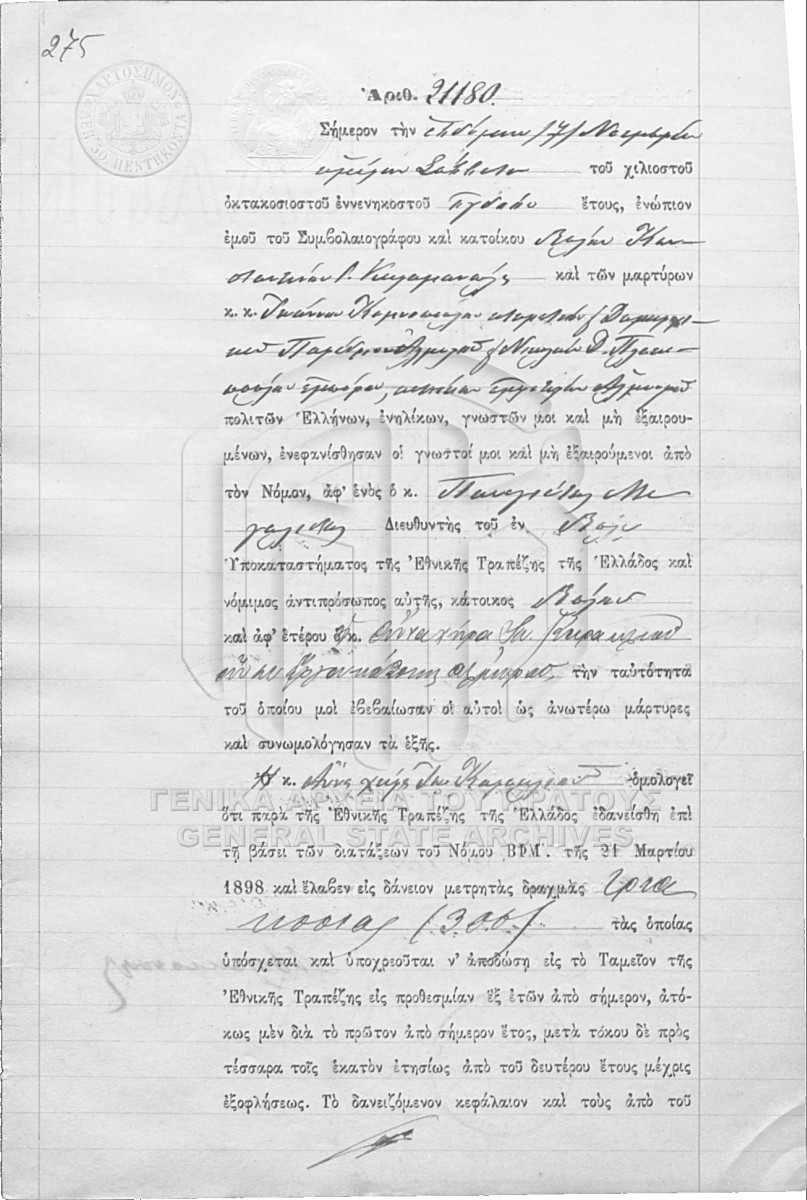 275
ΧΑΡΤΟΣΗΜΟΝ
ΛΕΠ. 50 ΠΕΝΤΗΚΟΝΤΑ
Ἀριθ. 21180.
Σήμερον τὴν ἑβδόμην /7/ Νοεμβρίου
ἡμέραν Σάββατον τοῦ χιλιοστοῦ
ὀκτακοσιοστοῦ ἐννενηκοστοῦ ὀγδόου ἔτους, ἐνώπιον
ἐμοῦ τοῦ Συμβολαιογράφου καὶ κατοίκου Βόλου Κων-
σταντίνου καὶ τῶν μαρτύρων
κ. κ. Ἰωάννου
Ἁλμυροῦ Νικολάου Δ.
ἐμπόρου, Ἁλμυροῦ
πολιτῶν Ἑλλήνων, ἐνηλίκων, γνωστῶν μοι καὶ μὴ ἐξαιρου-
μένων, ἐνεφανίσθησαν οἱ γνωστοί μοι καὶ μὴ ἐξαιρούμενοι ἀπὸ
τὸν Νόμον, ἀφ' ἑνὸς ὁ κ. Παναγιώτης
Διευθυντὴς τοῦ ἐν Βόλῳ
Ὑποκαταστήματος τῆς Ἐθνικῆς Τραπέζης τῆς Ἑλλάδος καὶ
νόμιμος ἀντιπρόσωπος αὐτῆς, κάτοικος Βόλου
καὶ ἀφ' ἑτέρου κ. χήρα
κάτοικος Ἁλμυροῦ, τὴν ταὐτότητα
τοῦ ὁποίου μοὶ ἐβεβαίωσαν οἱ αὐτοὶ ὡς ἀνωτέρω μάρτυρες
καὶ συνωμολόγησαν τὰ ἑξῆς.
Ἡ κ. χήρα ὁμολογεῖ
ΓΕΝΙΚΑ ΑΡΧΕΙΑ ΤΟΥ ΚΡΑΤΟΥΣ
ὅτι παρὰ τῆς Ἐθνικῆς Τραπέζης τῆς Ἑλλάδος ἐδανείσθη ἐπὶ
GENERAL STATE ARCHIVES
τῇ βάσει τῶν διατάξεων τοῦ Νόμου ΒΡΜ'. τῆς 21 Μαρτίου
1898 καὶ ἔλαβεν εἰς δάνειον μετρητὰς δραχμὰς τρια
κοσίας (300) τὰς ὁποίας
ὑπόσχεται καὶ ὑποχρεοῦται ν' ἀποδώσῃ εἰς τὸ Ταμεῖον τῆς
Ἐθνικῆς Τραπέζης εἰς προθεσμίαν ἓξ ἐτῶν ἀπὸ σήμερον, ἀτό-
κως μὲν διὰ τὸ πρῶτον ἀπὸ σήμερον ἔτος, μετὰ τόκου δὲ πρὸς
τέσσαρα τοῖς ἑκατὸν ἐτησίως ἀπὸ τοῦ δευτέρου ἔτους μέχρις
ἐξοφλήσεως. Τὸ δανειζόμενον κεφάλαιον καὶ τοὺς ἀπὸ τοῦ